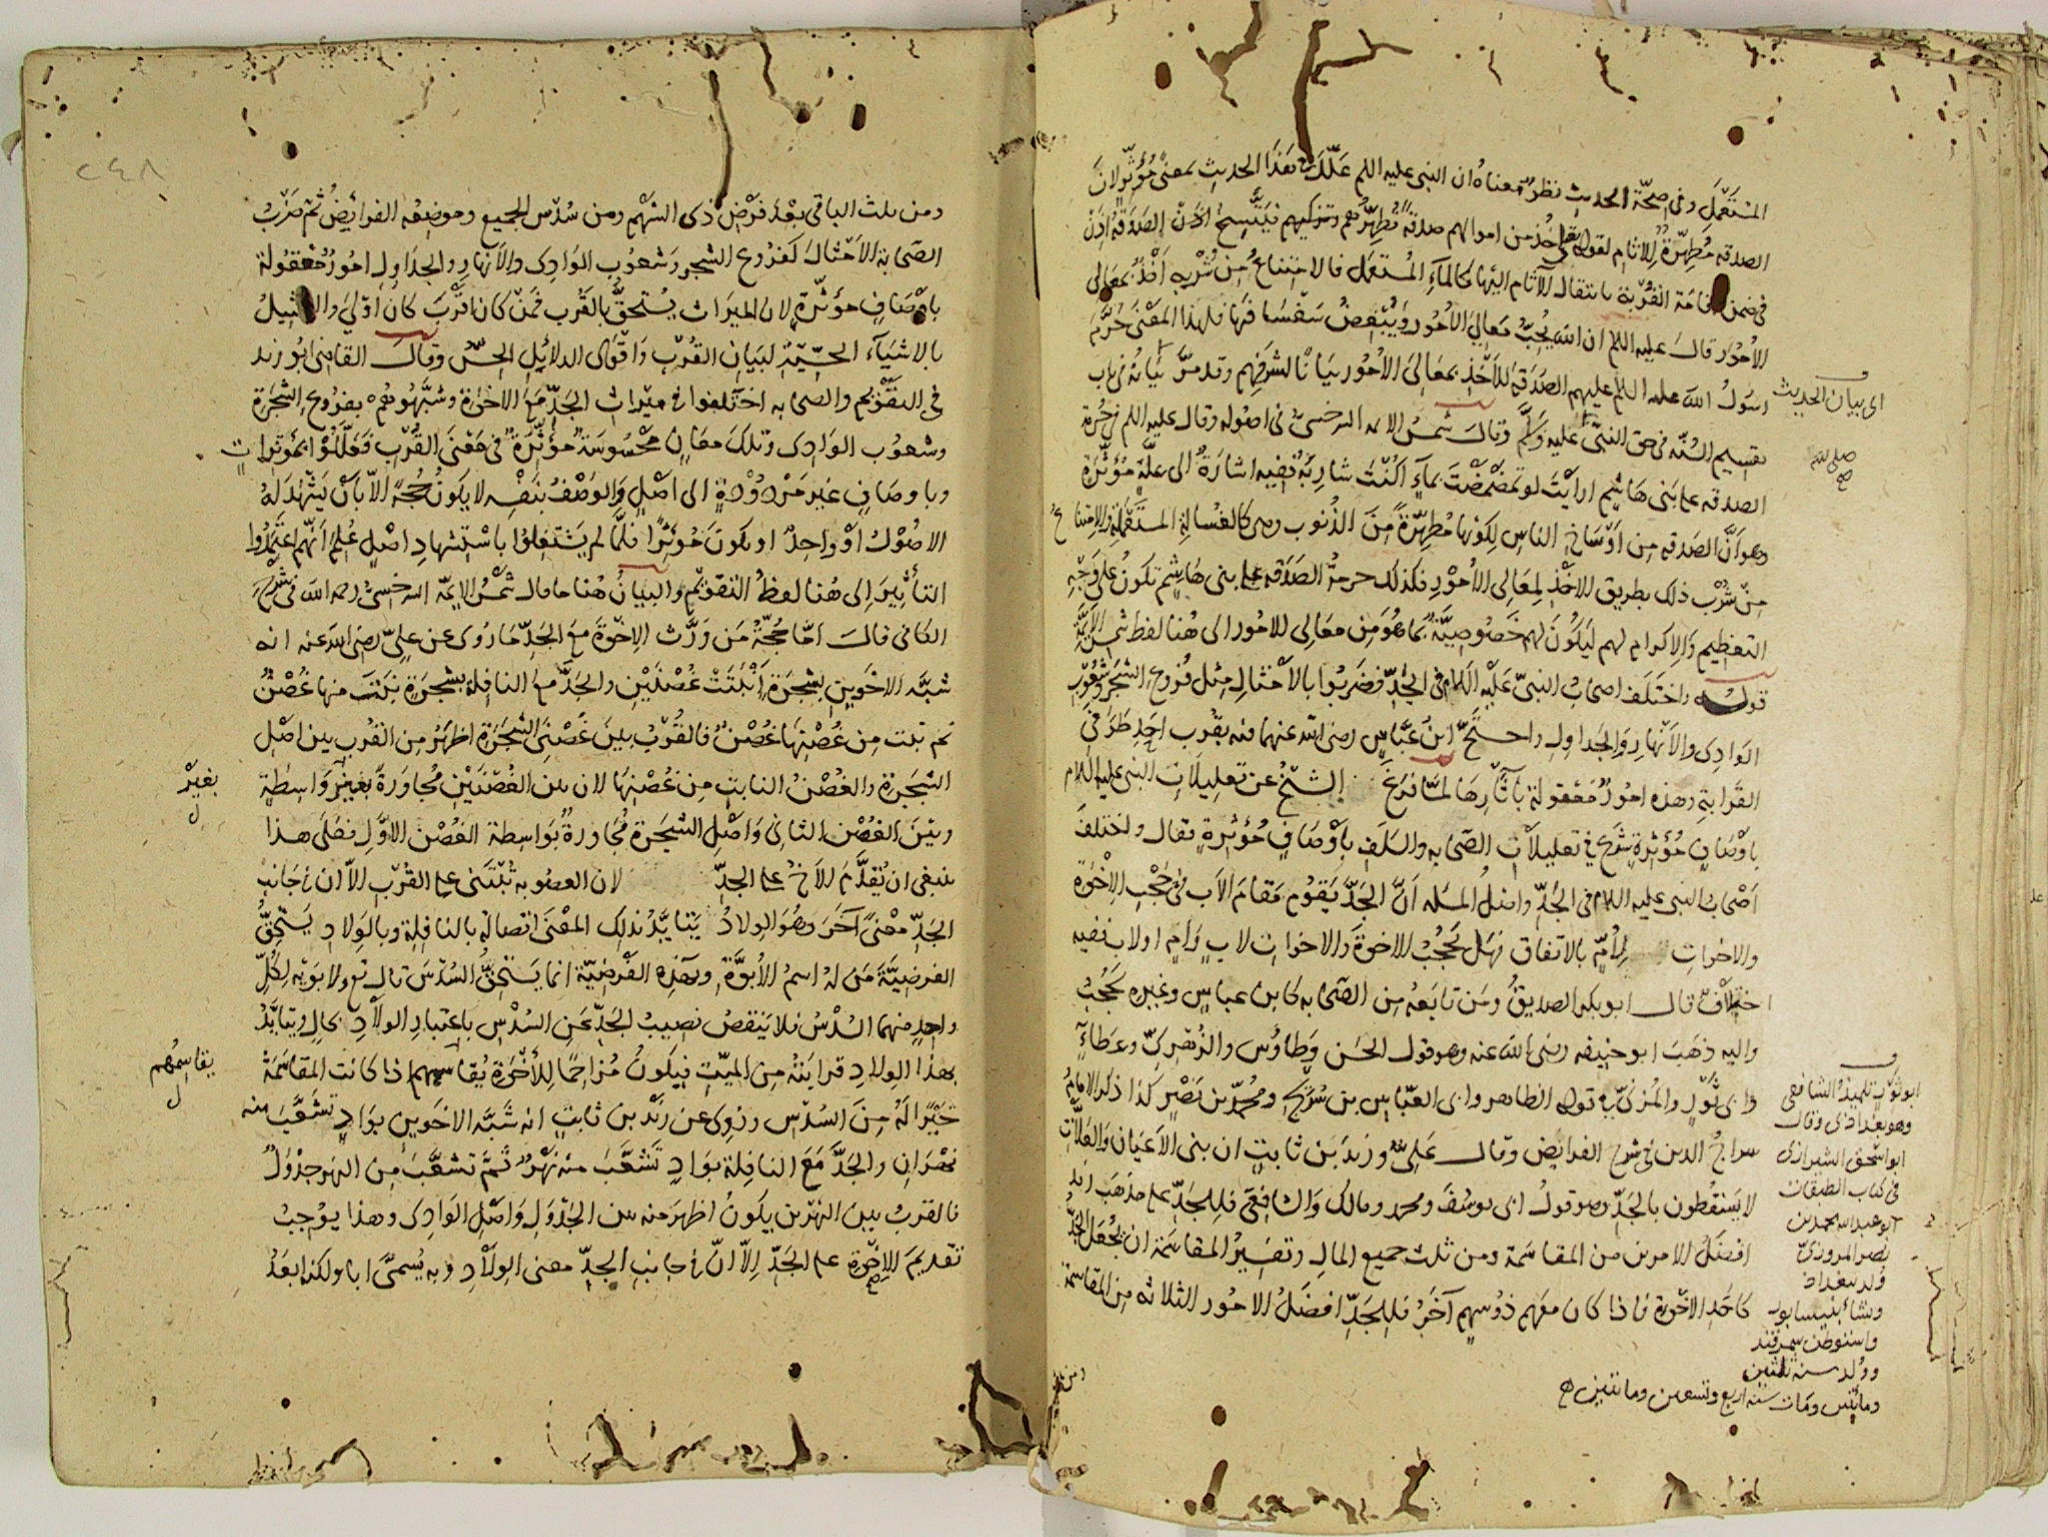 المستعمل وفى صحّة الحديث نظر معناه ان النبى عليه اللم علّل فى هذا الحديث بمعنى مؤثّر لان
الصدقه مطهّرة للآثام لقوله تعالى خذ من اموالهم صدقة تطهّرهم وتزكيهم
فى ضمن اقامة القربة بانتقال الآثام اليها كالمآء المستعمل فالامتناع من شربه اخذ بمعالى
الأمور قال عليه اللم ان الله يحبّ معالى الأمور ويبغض سفسافها فلهذا المعنى حرّم
رسول الله عليه اللم عليهم الصدقة للأخذ بمعالى الأمور بيانًا لشرفهم وقد مرّ بيانه فى باب
تقسيم السنّه فى حق النبىّ عليه وسلّم وقال شمس الايمه السرخسىّ فى اصوله وقال عليه اللم فى حرمة
الصدقه على بنى هاشم ارأيت لو تمضمضت بمآءٍ اكنت شاربه ففيه اشارة الى علّةٍ مؤثّرة
وهو أنّ الصدقه من اوساخ الناس لكونها مطهّرة من الذنوب وهى كالغسالة المستعملة والامتناع
من شرب ذلك بطريق الاخذ لمعالى الأمور فكذلك حرمة الصدقه على بنى هاشم تكون على وجه
التعظيم والاكرام لهم ليكون لهم خصوصيّة بما هو من معالى الامور الى هنا لفظ شمس الايمّة
قوله واختلف اصحاب النبىّ عليه اللام فى الجدّ فضربوا بالأمثال مثل فروع الشجر وشعوب
الوادى والأنهار والجداول واحتجّ ابن عبّاس رضى الله عنهما فيه بقرب احد طرفى
القرابة وهذه امور معقولة بآثارها لمّا فرغ الشيخ عن تعليلات النبى عليه اللام
باوصافٍ مؤثرةٍ شرع فى تعليلات الصحابه والسلف بأوصافٍ مؤثرةٍ فقال واختلف
اصحاب النبى عليه اللام فى الجدّ واصل المسله انّ الجدّ يقوم مقام الاب فى حجب الاخوة
والاخوات لأمٍّ بالاتفاق فهل يحجب الاخوة والاخوات لابٍ وأمٍ او لاب ففيه
اختلافٌ قال ابو بكر الصديق ومن تابعه من الصحابه كابن عباسٍ وغيره يحجب
واليه ذهب ابو حنيفه رضى الله عنه وهو قول الحسن وطاؤس والزهرىّ وعطاءٍ
وابى ثورٍ والمزنىّ قول الظاهر وابى العبّاس بن شريح ومحمد بن نصرٍ كذا ذكر الامام
سراج الدين فى شرح الفرايض وقال علىّ وزيد بن ثابتٍ ان بنى الأعيان والعلّات
لا يسقطون بالجدّ وهو قول ابى يوسف ومحمد ومالك والشافعى فللجدّ على مذهب زيد
افضل الامرين من المقاسمة ومن ثلث جميع المال وتفسير المقاسمة ان يجعل الجدّ
كاحد الاخوة فاذا كان معهم ذو سهمٍ آخر فللجدّ افضل الامور الثلاثه من المقاسمة
ومن
اى بيان الحديث
صلى الله
صح
ابو ثور تلميذ الشافعى
وهو بغدادى وقال
ابو اسحق الشيرازى
فى كتاب الطبقات
ابو عبد الله محمد بن
نصر المروزىّ
ولد ببغداد
ونشأ بنيسابور
واستوطن سمرقند
وولد سنه ثلثين
ومأيتين ومات سنه اربع وتسعين ومايتين
٢٤٨
ومن ثلث الباقى بعد فرض ذى السهم ومن سدس الجميع وموضعه الفرايض ثم ضرب
الصحابة الأمثال كفروع الشجر وشعوب الوادى والأنهار والجداول امور معقولة
باوصافٍ مؤثّرةٍ لان الميراث يستحقّ بالقرب فمن كان اقرب كان اولى والتمثيل
بالاشيآء الحسّيّة لبيان القرب واقوى الدلائل الحسّ وقال القاضى ابو زيد
فى التقويم والصحابه اختلفوا فى ميراث الجدّ مع الاخوة وشبّهوهم بفروع الشجرة
وشعوب الوادى وتلك معانٍ محسوسة مؤثّرة فى معنى القرب فعلّلوا بمؤثرات
وباوصافٍ غير مردودةٍ الى اصلٍ والوصف بنفسه لا يكون حجّة الّا بأن يشهد له
الاصول او واحد او يكون مؤثّرا فلمّا لم يشتغلوا باستشهاد اصلٍ علم انّهم اعتمدوا
التأثير الى هنا لفظ التقويم والبيان هنا ما قال شمس الايمّة السرخسىّ رحمه الله فى شرح
الكافى قال امّا حجّة من ورّث الاخوة مع الجدّ ما روى عن علىّ رضى الله عنه انه
شبّه الاخوين بشجرة انبتت غصنين والجدّ مع النافلة بشجرةٍ نبتت منها غصن
ثم نبت من غصنها غصن فالقرب بين غصنى الشجرة اظهر من القرب بين اصل
الشجرة والغصن النابت من غصنها لان بين الغصنين مجاورة بغير واسطةٍ
وبين الغصن الثانى واصل الشجرة مجاورة بواسطة الغصن الاوّل فعلى هذا
ينبغى ان يقدّم الأخ على الجدّ لان العصوبه تبتنى على القرب الّا ان فى جانب
الجدّ معنًى آخر وهو الولاد يتايّد بذلك المعنى اتصاله بالنافلة وبالولاد يستحقّ
الفرضيّة من له اسم الأبوّة وبهذه الفرضيّة انما يستحقّ السدس قال تع ولابويه لكلّ
واحدٍ منهما السدس فلا ينقص نصيب الجدّ عن السدس باعتبار الولاد بحالٍ ويتايّد
بهذا الولاد قرابته من الميّت فيكون مزاحمًا للأخوة يقاسمهم اذا كانت المقاسمة
خيرًا له من السدس وروى عن زيد بن ثابتٍ انه شبّه الاخوين بوادٍ تشعّب منه
نهران والجدّ مع النافلة بوادٍ تشعّب منه نهر ثمّ تشعّب من النهر جدول
فالقرب بين النهرين يكون اظهر منه بين الجدول واصل الوادى وهذا يوجب
تقديم الاخوة على الجدّ الّا انّ فى جانب الجدّ معنى الولاد وبه يسمّى ابا ولكن ابعد
بغير
ل
يقاسمهم
ل